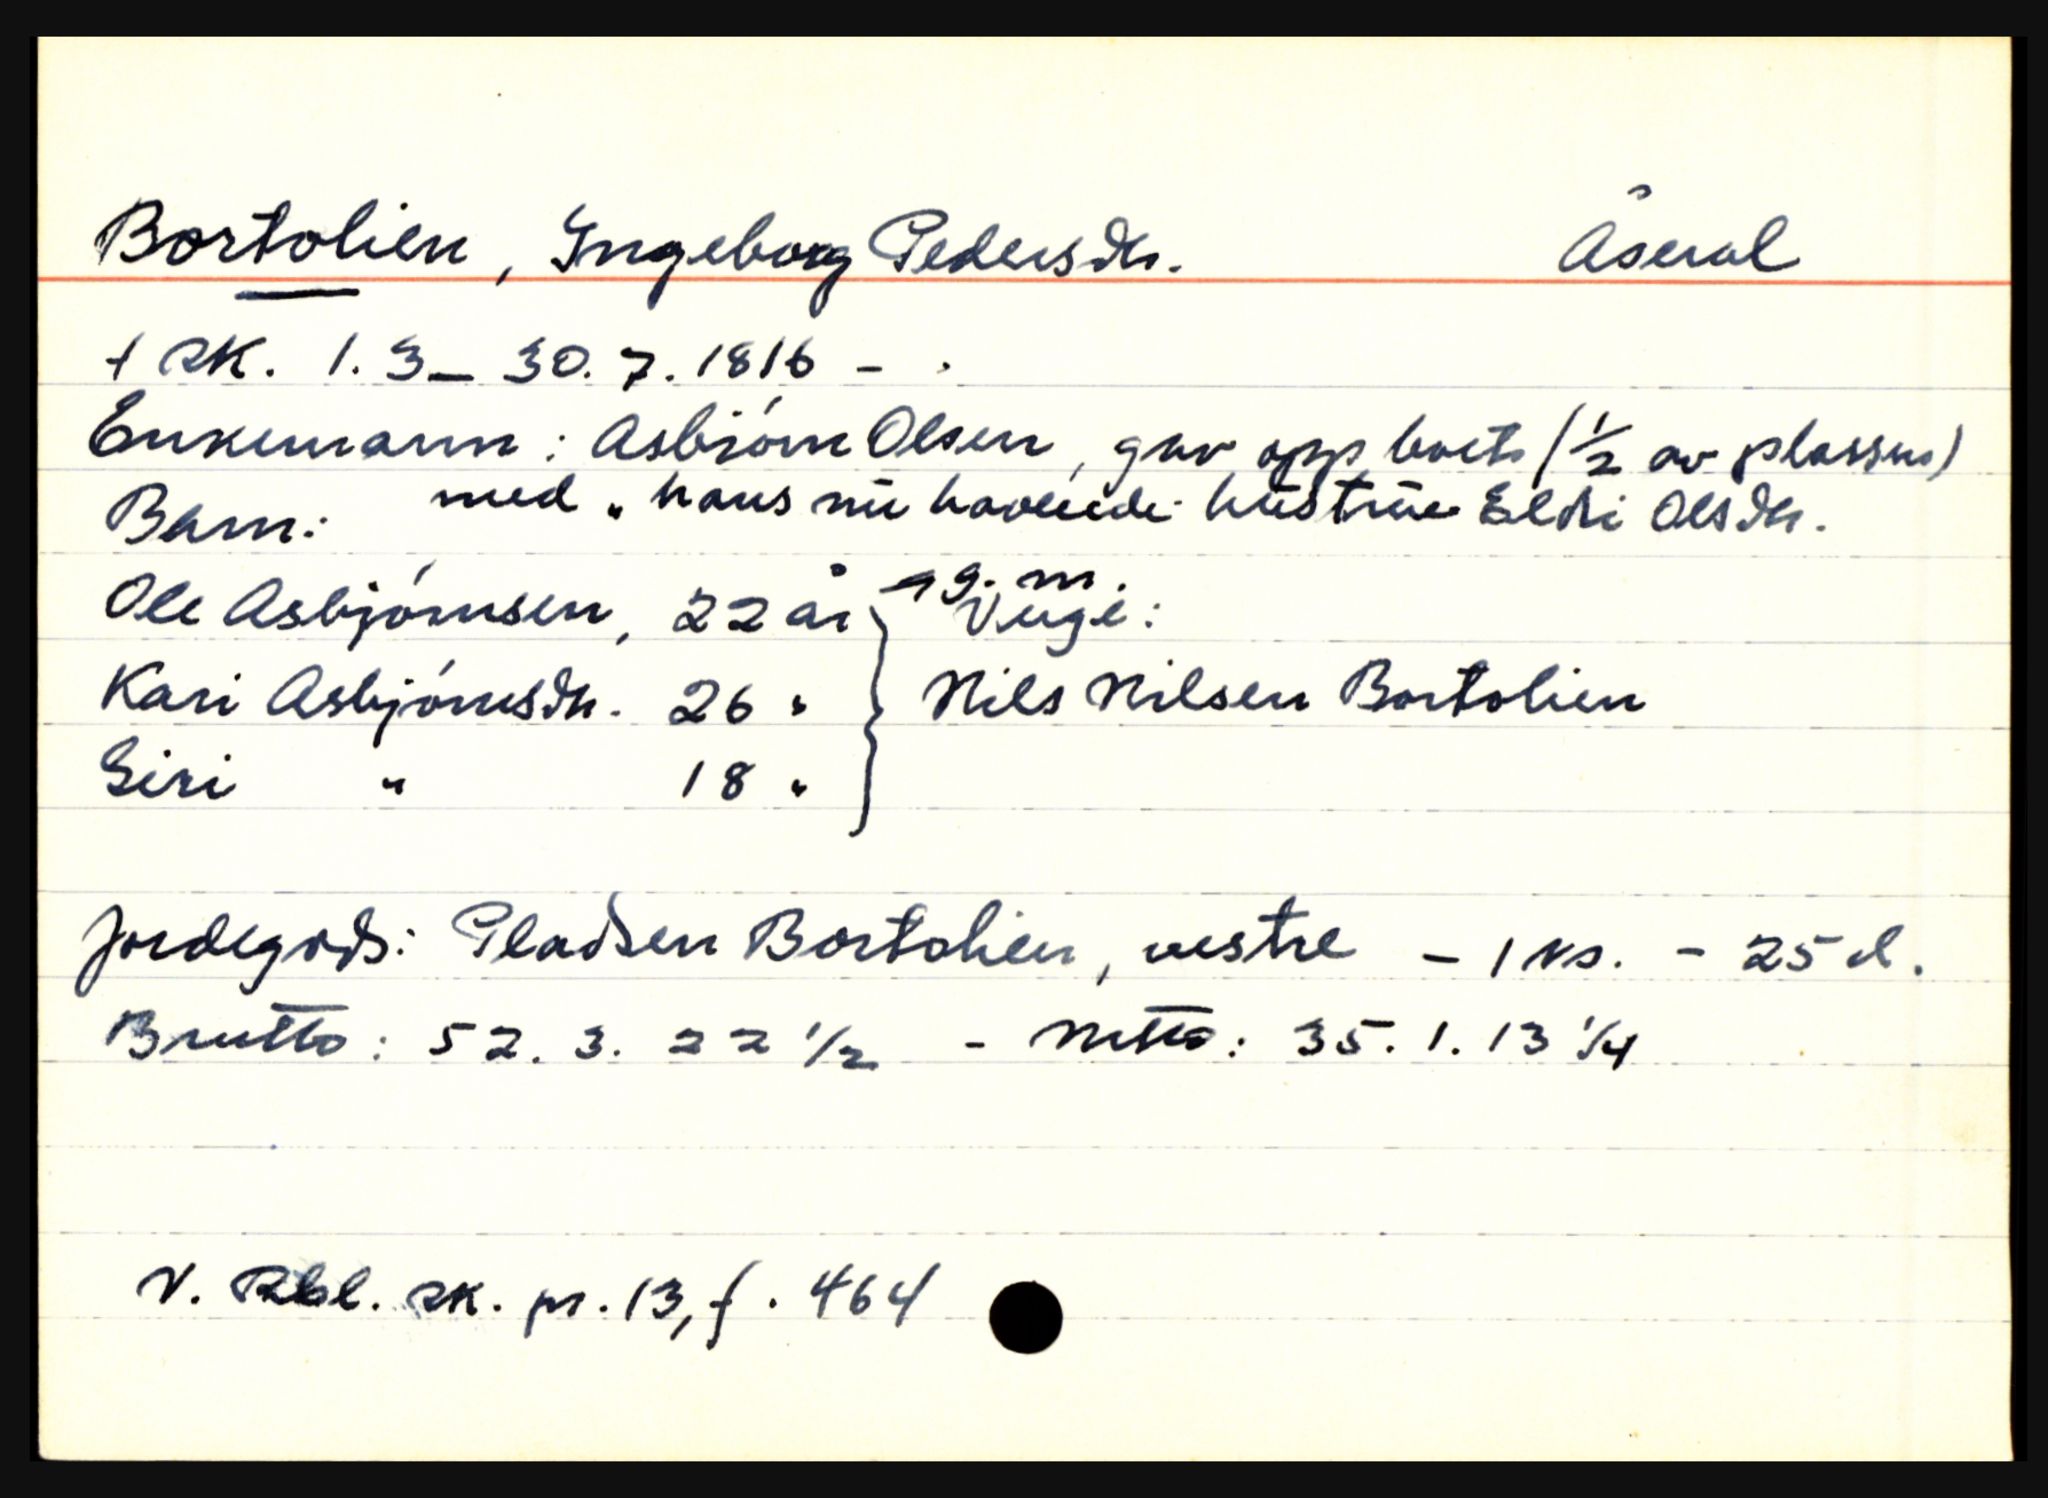 Bortolien, Ingeborg Pedersdtr. Åseral
† sk. 1.3 - 30.7.1816 -
Enkemann: Asbiørn Olsen, gav opp boet (1/2 av plassen)
med „hans nu havende hustrue Eldri Olsdtr.
Barn:
Ole Asbjørnsen, 22 år g.m.
Verge:
Kari Asbjørnsdtr. 26 " Nils Nilsen Bortolien
Siri " 18 "
Jordegods: Pladsen Bortolien, vestre - 1 ks. - 25 d.
Brutto: 52. 3. 22 1/2 - Netto: 35. 1. 13 1/4
V. Rbl. sk. pr. 13, f. 464